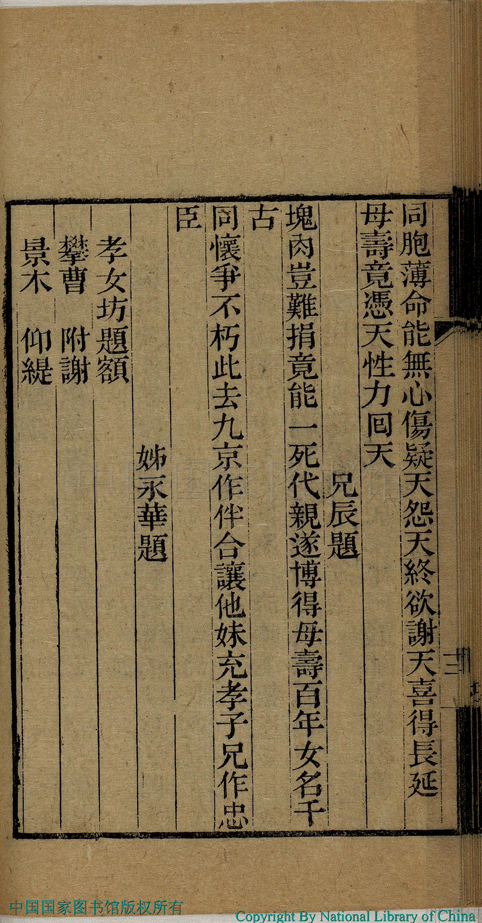 同胞薄命能無心傷疑天怨天終欲謝天喜得長延
母壽竟憑天性力囘天
兄辰題
塊肉豈難捐竟能一死代親遂博得母壽百年女名千
古
同懷爭不朽此去九京作伴合讓他妹充孝子兄作忠
臣
姊永華題
孝女坊題額
攀曹 附謝
景木 仰緹
十二
中国国家图书馆版权所有
Copyright By National Library of China